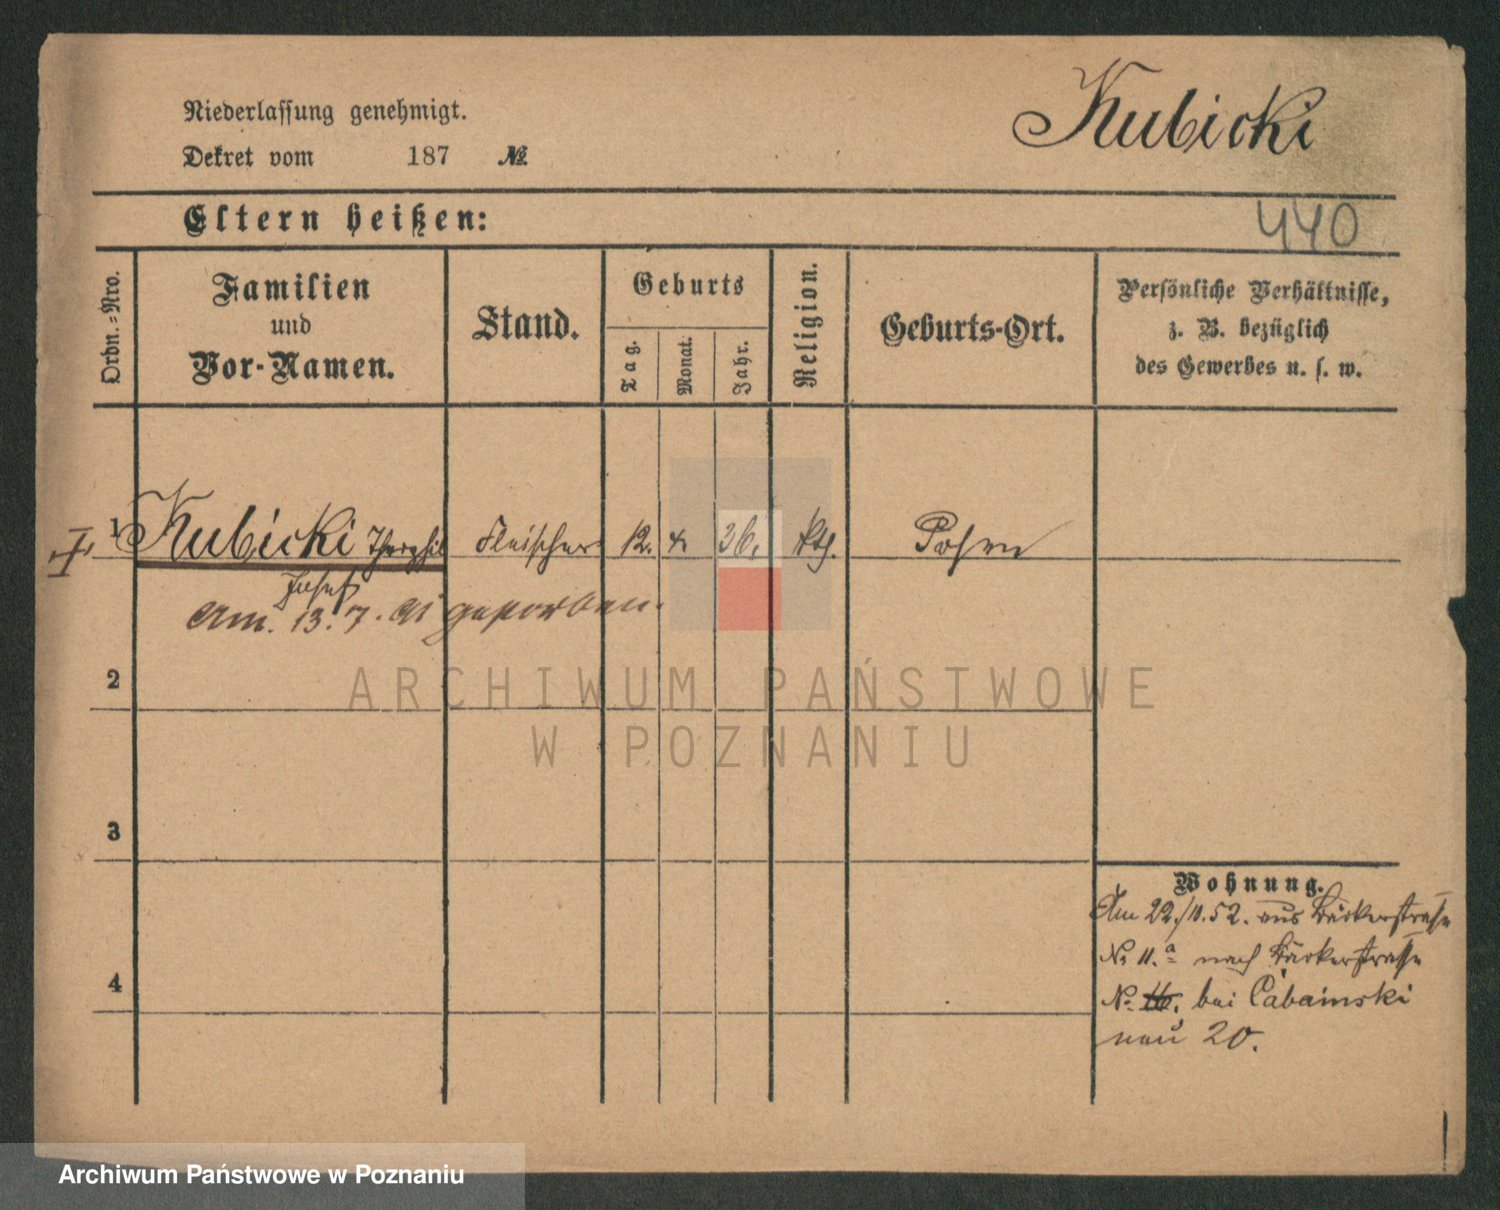 Niederlassung genehmigt.
Dekret vom 187 №
Kubicki
Eltern heißen:
440
Ordn.-Nro.
Familien
und
Vor-Namen.
Stand.
Geburts
Tag.
Monat.
Jahr.
Religion.
Geburts-Ort.
Persönliche Verhältnisse,
z. B. bezüglich
des Gewerbes u. s. w.
I. 1 Kubicki Theophil Fleischer 12. 4. 36. kth. Posen
Josef
Am 13. 7. 91 gestorben.
2
3
4
Wohnung.
Am 22./11.52. aus Bäckerstrasse
No 11.a nach Bäckerstrasse
No 16. bei Cabainski
neu 20.
ARCHIWUM PAŃSTWOWE
W POZNANIU
Archiwum Państwowe w Poznaniu